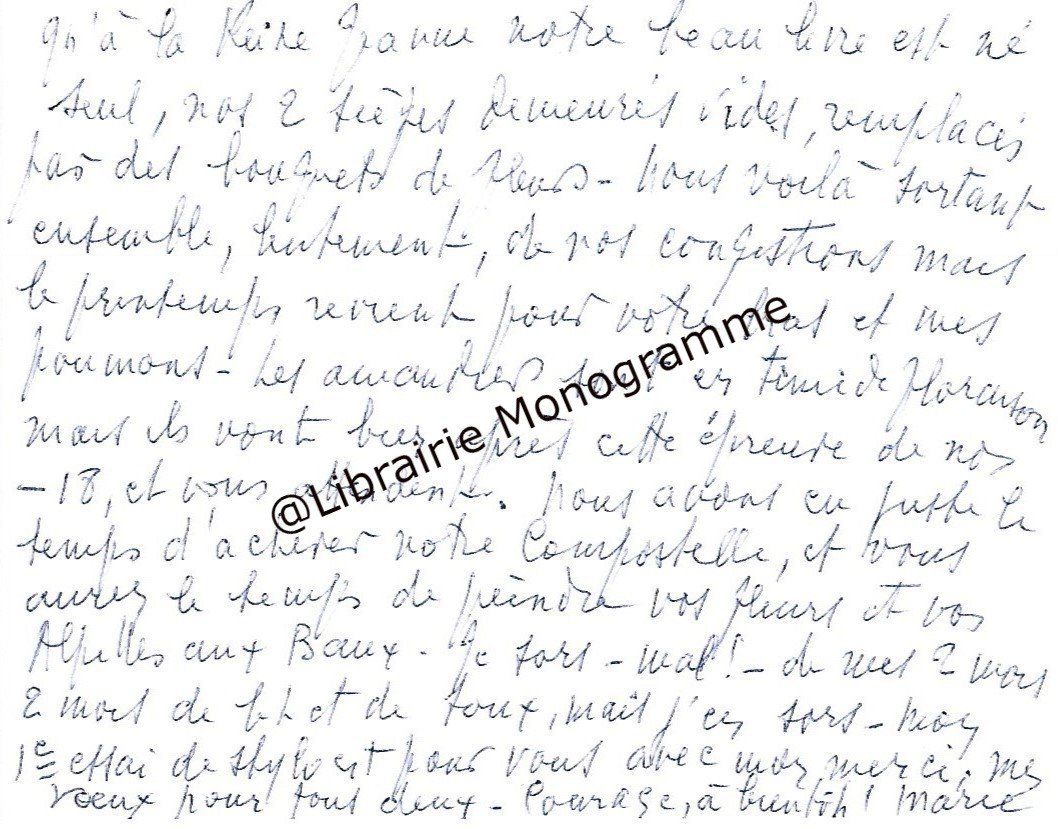 qu'à la Reine Jeanne notre beau livre est né
seul, nos 2 sièges demeurés vides, remplacés
par des bouquets de fleurs - Nous voilà sortant
ensemble, lentement, de nos congestions mais
le printemps revient pour votre bras et mes
poumons - Les amandiers sont en timide floraison
mais ils vont bien après cette épreuve de nos
-18, et vous attendent. Nous avons eu juste le
temps d'achever notre Compostelle, et vous
aurez le temps de peindre vos fleurs et vos
Alpilles aux Baux - Je sors - mal! - de mes 2 mois
2 mois de lit et de toux, mais j'en sors - Mon
1e essai de stylo est pour vous avec mon merci, mes
vœux pour tous deux - Courage, à bientôt! Marie
@Librairie Monogramme